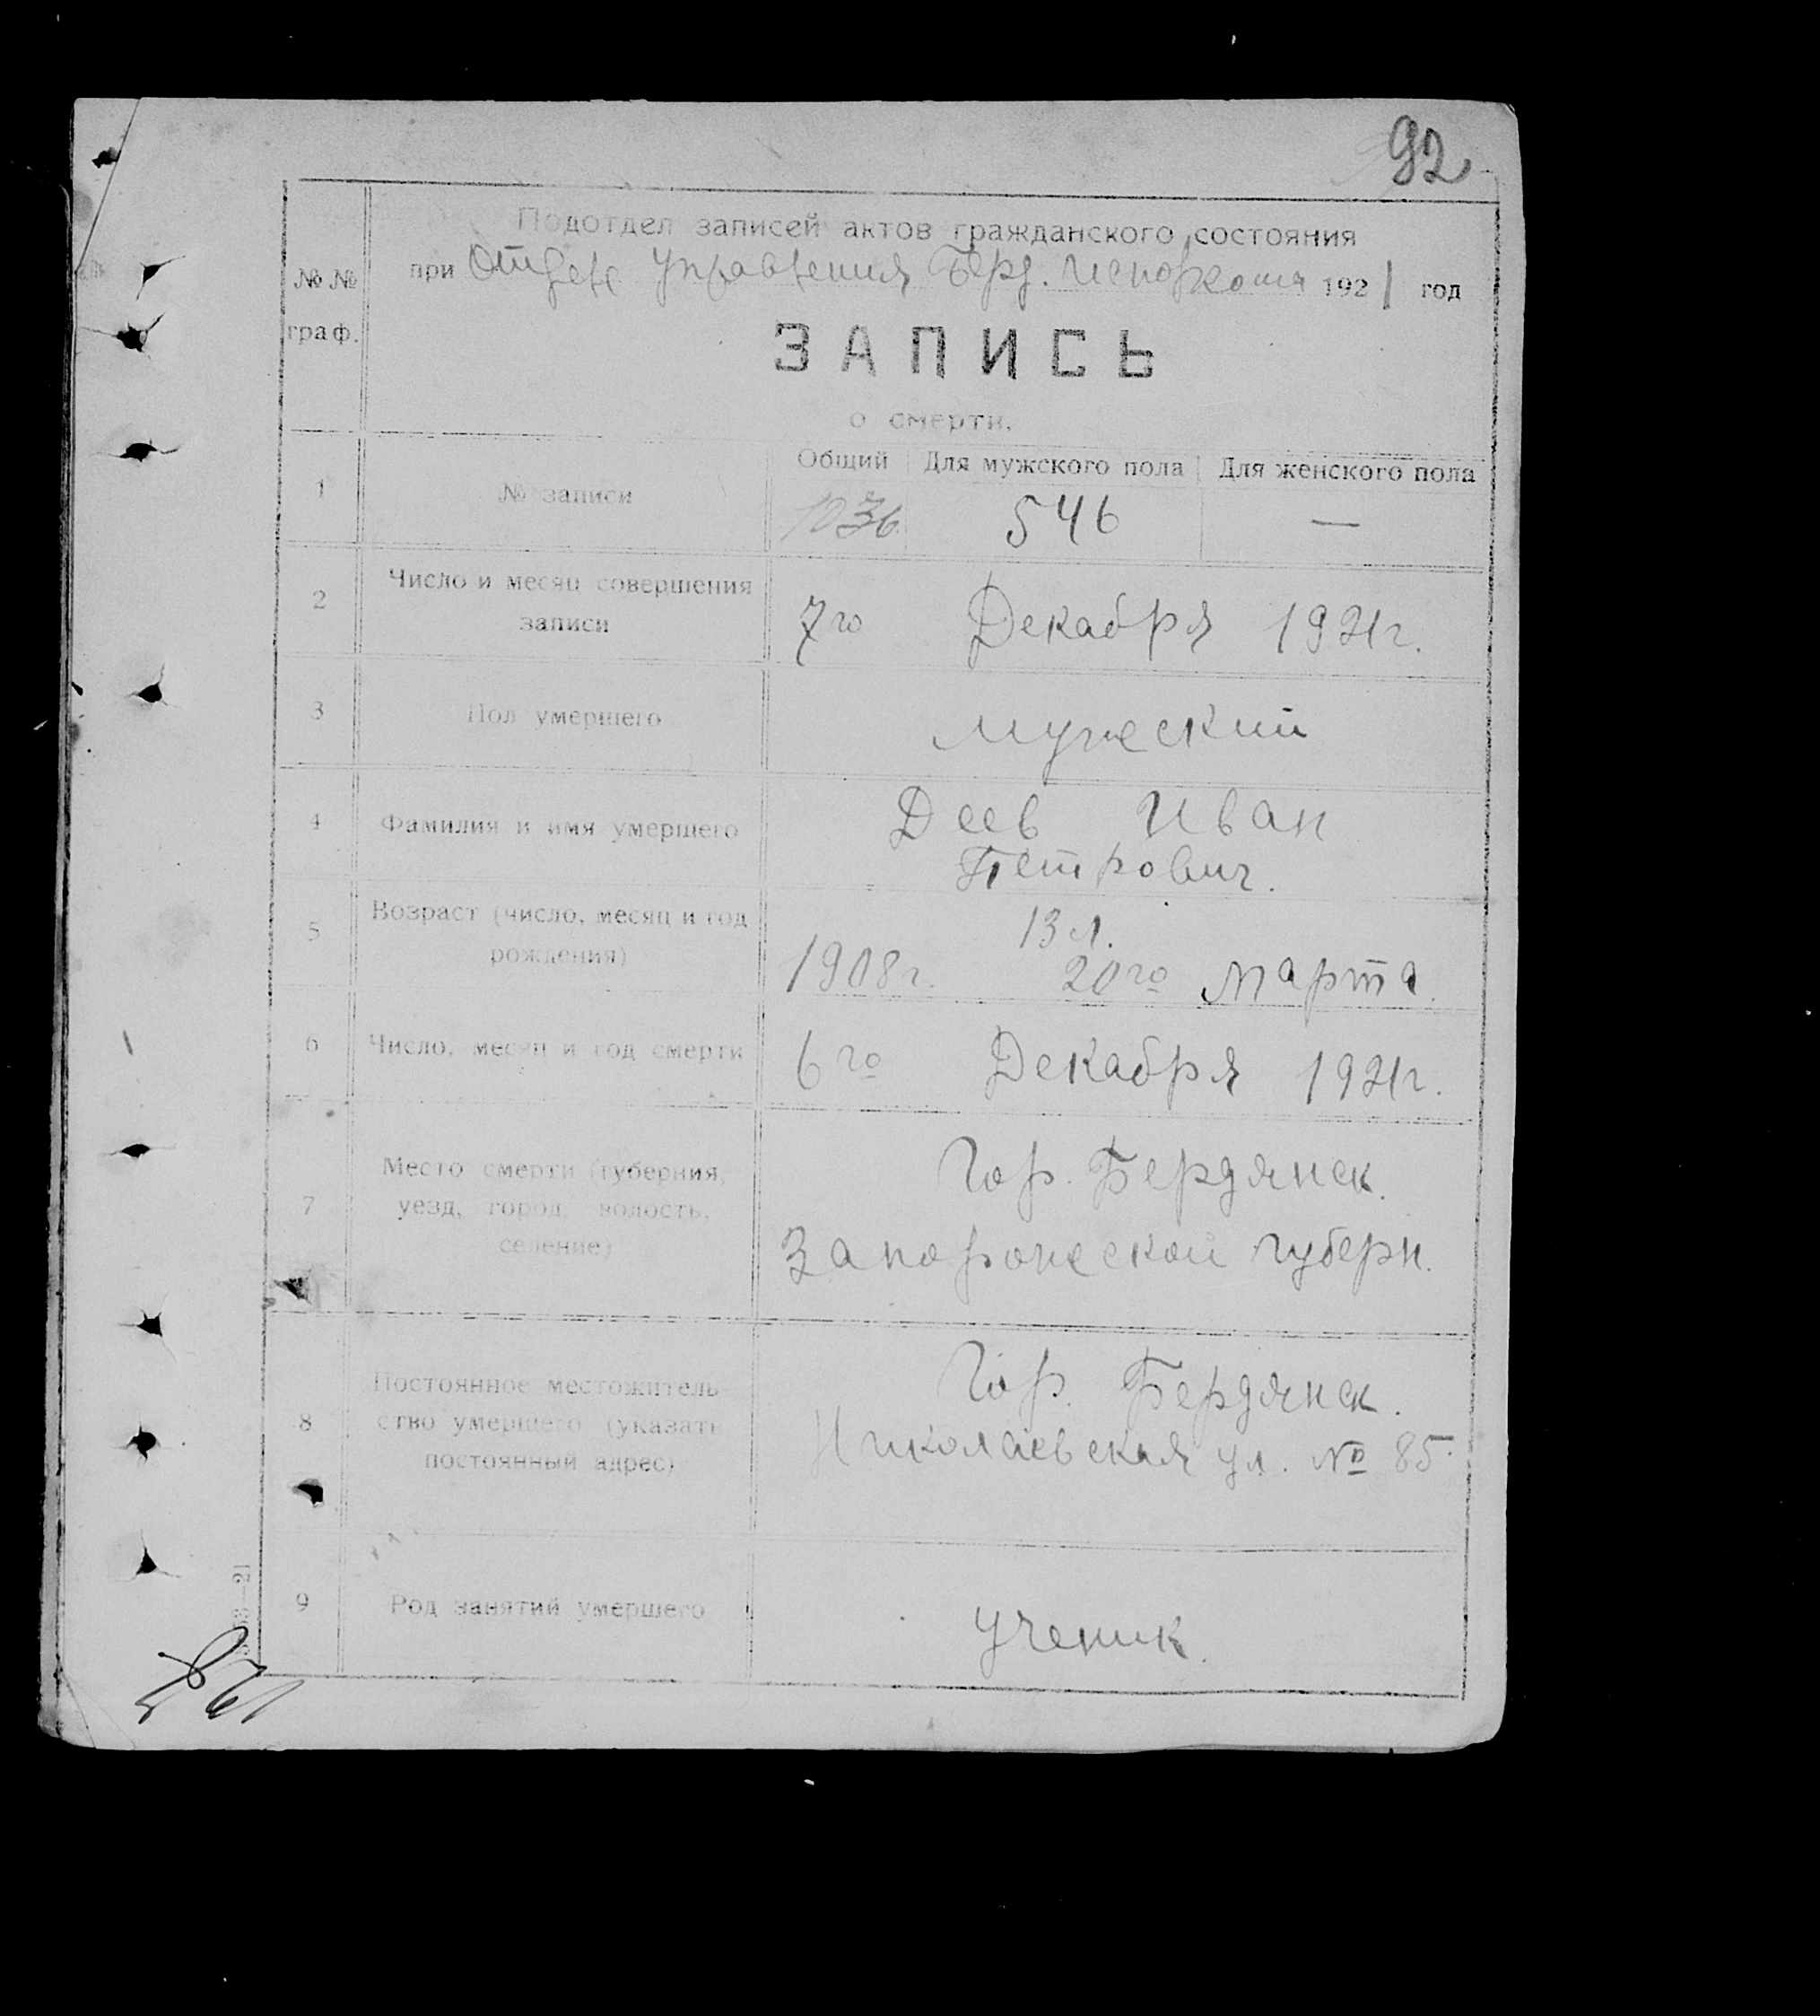 92
Подотдел записей актов гражданского состояния
при Отделе Управления Берд. Исполкома 1921 год
№№ граф.
ЗАПИСЬ
о смерти.
Общий Для мужского пола Для женского пола
1 № записи 1036 546 —
2 Число и месяц совершения
записи 7го Декабря 1921г.
3 Пол умершего Мужеский
4 Фамилия и имя умершего Деев Иван
Петрович.
5 Возраст (число, месяц и год
рождения) 13 л.
1908г. 20го Марта.
6 Число, месяц и год смерти 6го Декабря 1921г.
7 Место смерти (губерния,
уезд, город, волость,
селение)
Гор. Бердянск.
Запорожеской губерн.
8 Постоянное местожитель
ство умершего (указать
постоянный адрес)
Гор. Бердянск.
Николаевская ул. № 85.
9 Род занятий умершего ученик.